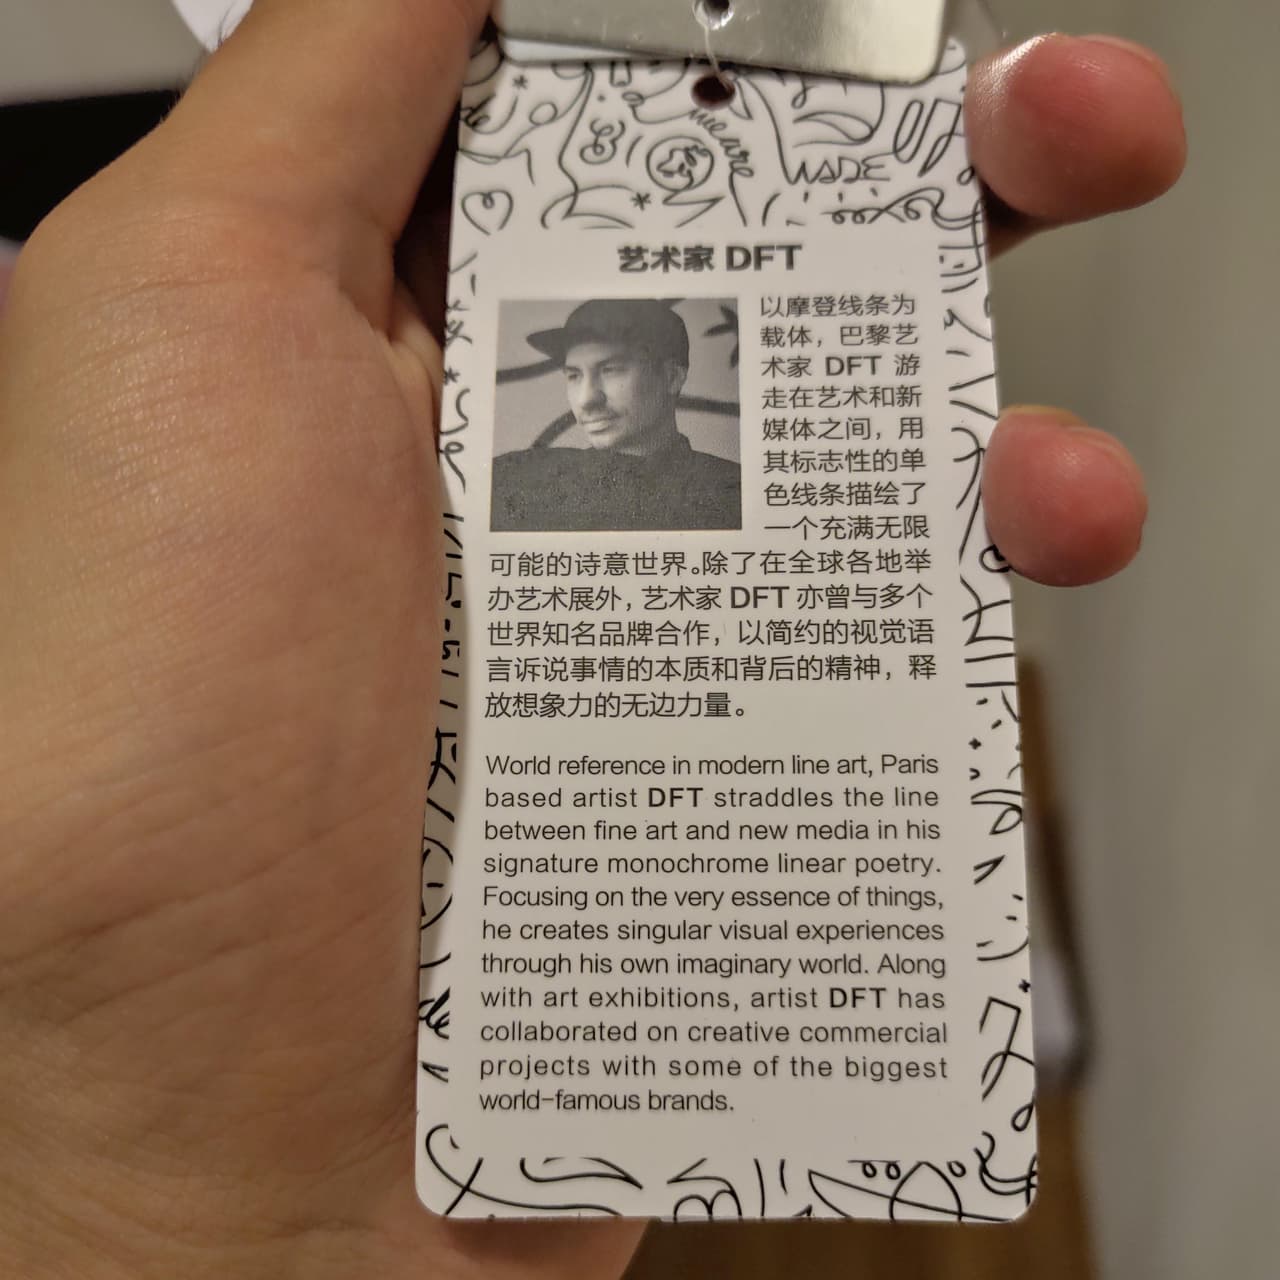 de
we are
MADE
艺术家 DFT
以摩登线条为
载体，巴黎艺
术家 DFT 游
走在艺术和新
媒体之间，用
其标志性的单
色线条描绘了
一个充满无限
可能的诗意世界。除了在全球各地举
办艺术展外，艺术家 DFT 亦曾与多个
世界知名品牌合作，以简约的视觉语
言诉说事情的本质和背后的精神，释
放想象力的无边力量。
World reference in modern line art, Paris
based artist DFT straddles the line
between fine art and new media in his
signature monochrome linear poetry.
Focusing on the very essence of things,
he creates singular visual experiences
through his own imaginary world. Along
with art exhibitions, artist DFT has
collaborated on creative commercial
projects with some of the biggest
world-famous brands.
de